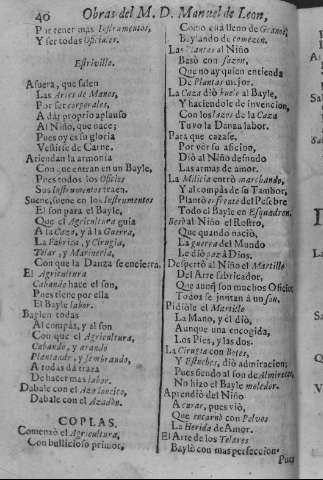 40 Obras del M. D. Manuel de Leon,
Por tener mas Instrumentos,
Y ser todas Oficiales.
Estrivillo.
Afuera, que salen
Las Artes de Manos,
Por ser corporales,
A dar proprio aplauso
Al Niño, que nace;
Pues oy es su gloria
Vestirse de Carne.
Atiendan la armonia
Con que entran en un Bayle,
Pues todos los Oficios
Sus Instrumentos traen.
Suene, suene en los Instrumentos
El son para el Bayle,
Que el Agricultura guia
A la Caza, y à la Guerra,
La Fabrica, y Cirugia,
Telar, y Marineria,
Con que la Danza se encierra.
El Agricultura
Cabando hace el son,
Pues tiene por ella
El Bayle labor.
Baylen todas
Al compàs, y al son
Con que el Agricultura,
Cabando, y arando
Plantando, y sembrando,
A todas dà traza
De hacer mas labor.
Dabale con el Azadoncito,
Dabale con el Azadon.
COPLAS.
Comenzò el Agricultura,
Con bullicioso primor,
Como està lleno de Granos,
Baylando de comezon.
Las Plantas al Niño
Besò con sazon,
Que no ay quien entienda
De Plantas mejor.
La Caza diò buelo al Bayle,
Y haciendole de invencion,
Con los lazos de la Caza
Tuvo la Danza labor.
Para que cazasse,
Por ver su aficion,
Diò al Niño desnudo
Las armas de amor.
La Milicia entrò marchando,
Y al compàs de su Tambor,
Plantò en frente del Pesebre
Todo el Bayle en Esquadron.
Besò al Niño el Rostro,
Que quando naciò,
La guerra del Mundo
Le diò paz à Dios.
Despertò al Niño el Martillo
Del Arte fabricador,
Que aunq son muchos Oficios
Todos se juntan à un son.
Pidiòle el Martillo
La Mano, y el diò,
Aunque una encogida,
Los Pies, y las dos.
La Cirugia con Botes,
Y Estuches, diò admiracion;
Pues siendo al son de Almireces,
No hizo el Bayle moledor.
Aprendiò del Niño
A curar, pues viò,
Que encarnò con Polvos
La Herida de Amor.
El Arte de los Telares
Baylò con mas perfeccion.
Pues